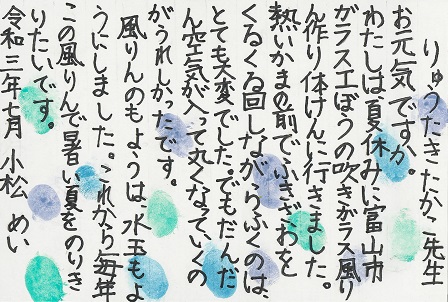 りゅうたきたかこ先生
お元気ですか。
わたしは夏休みに富山市
ガラス工ぼうの吹きガラス風り
ん作り体けんに行きました。
熱いかまの前でふきざおを
くるくる回しながらふくのは、
とても大変でした。でもだんだ
ん空気が入って丸くなっていくの
がうれしかったです。
風りんのもようは、水玉もよ
うにしました。これから毎年
この風りんで暑い夏をのりき
りたいです。
令和三年七月 小松 めい